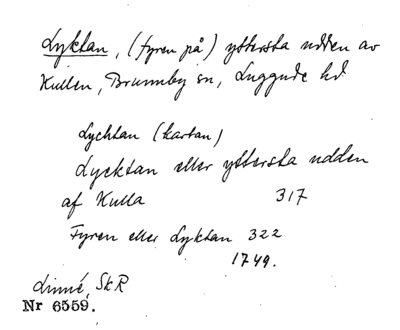 Lyktan, (fyren på) yttersta udden av
Kullen, Brunnby sn, Luggude hd
Lychtan (kartan)
Lycktan eller yttersta udden
af Kulla 317
Fyren eller Lyktan 322
1749.
Linné, SkR
Nr 6559.